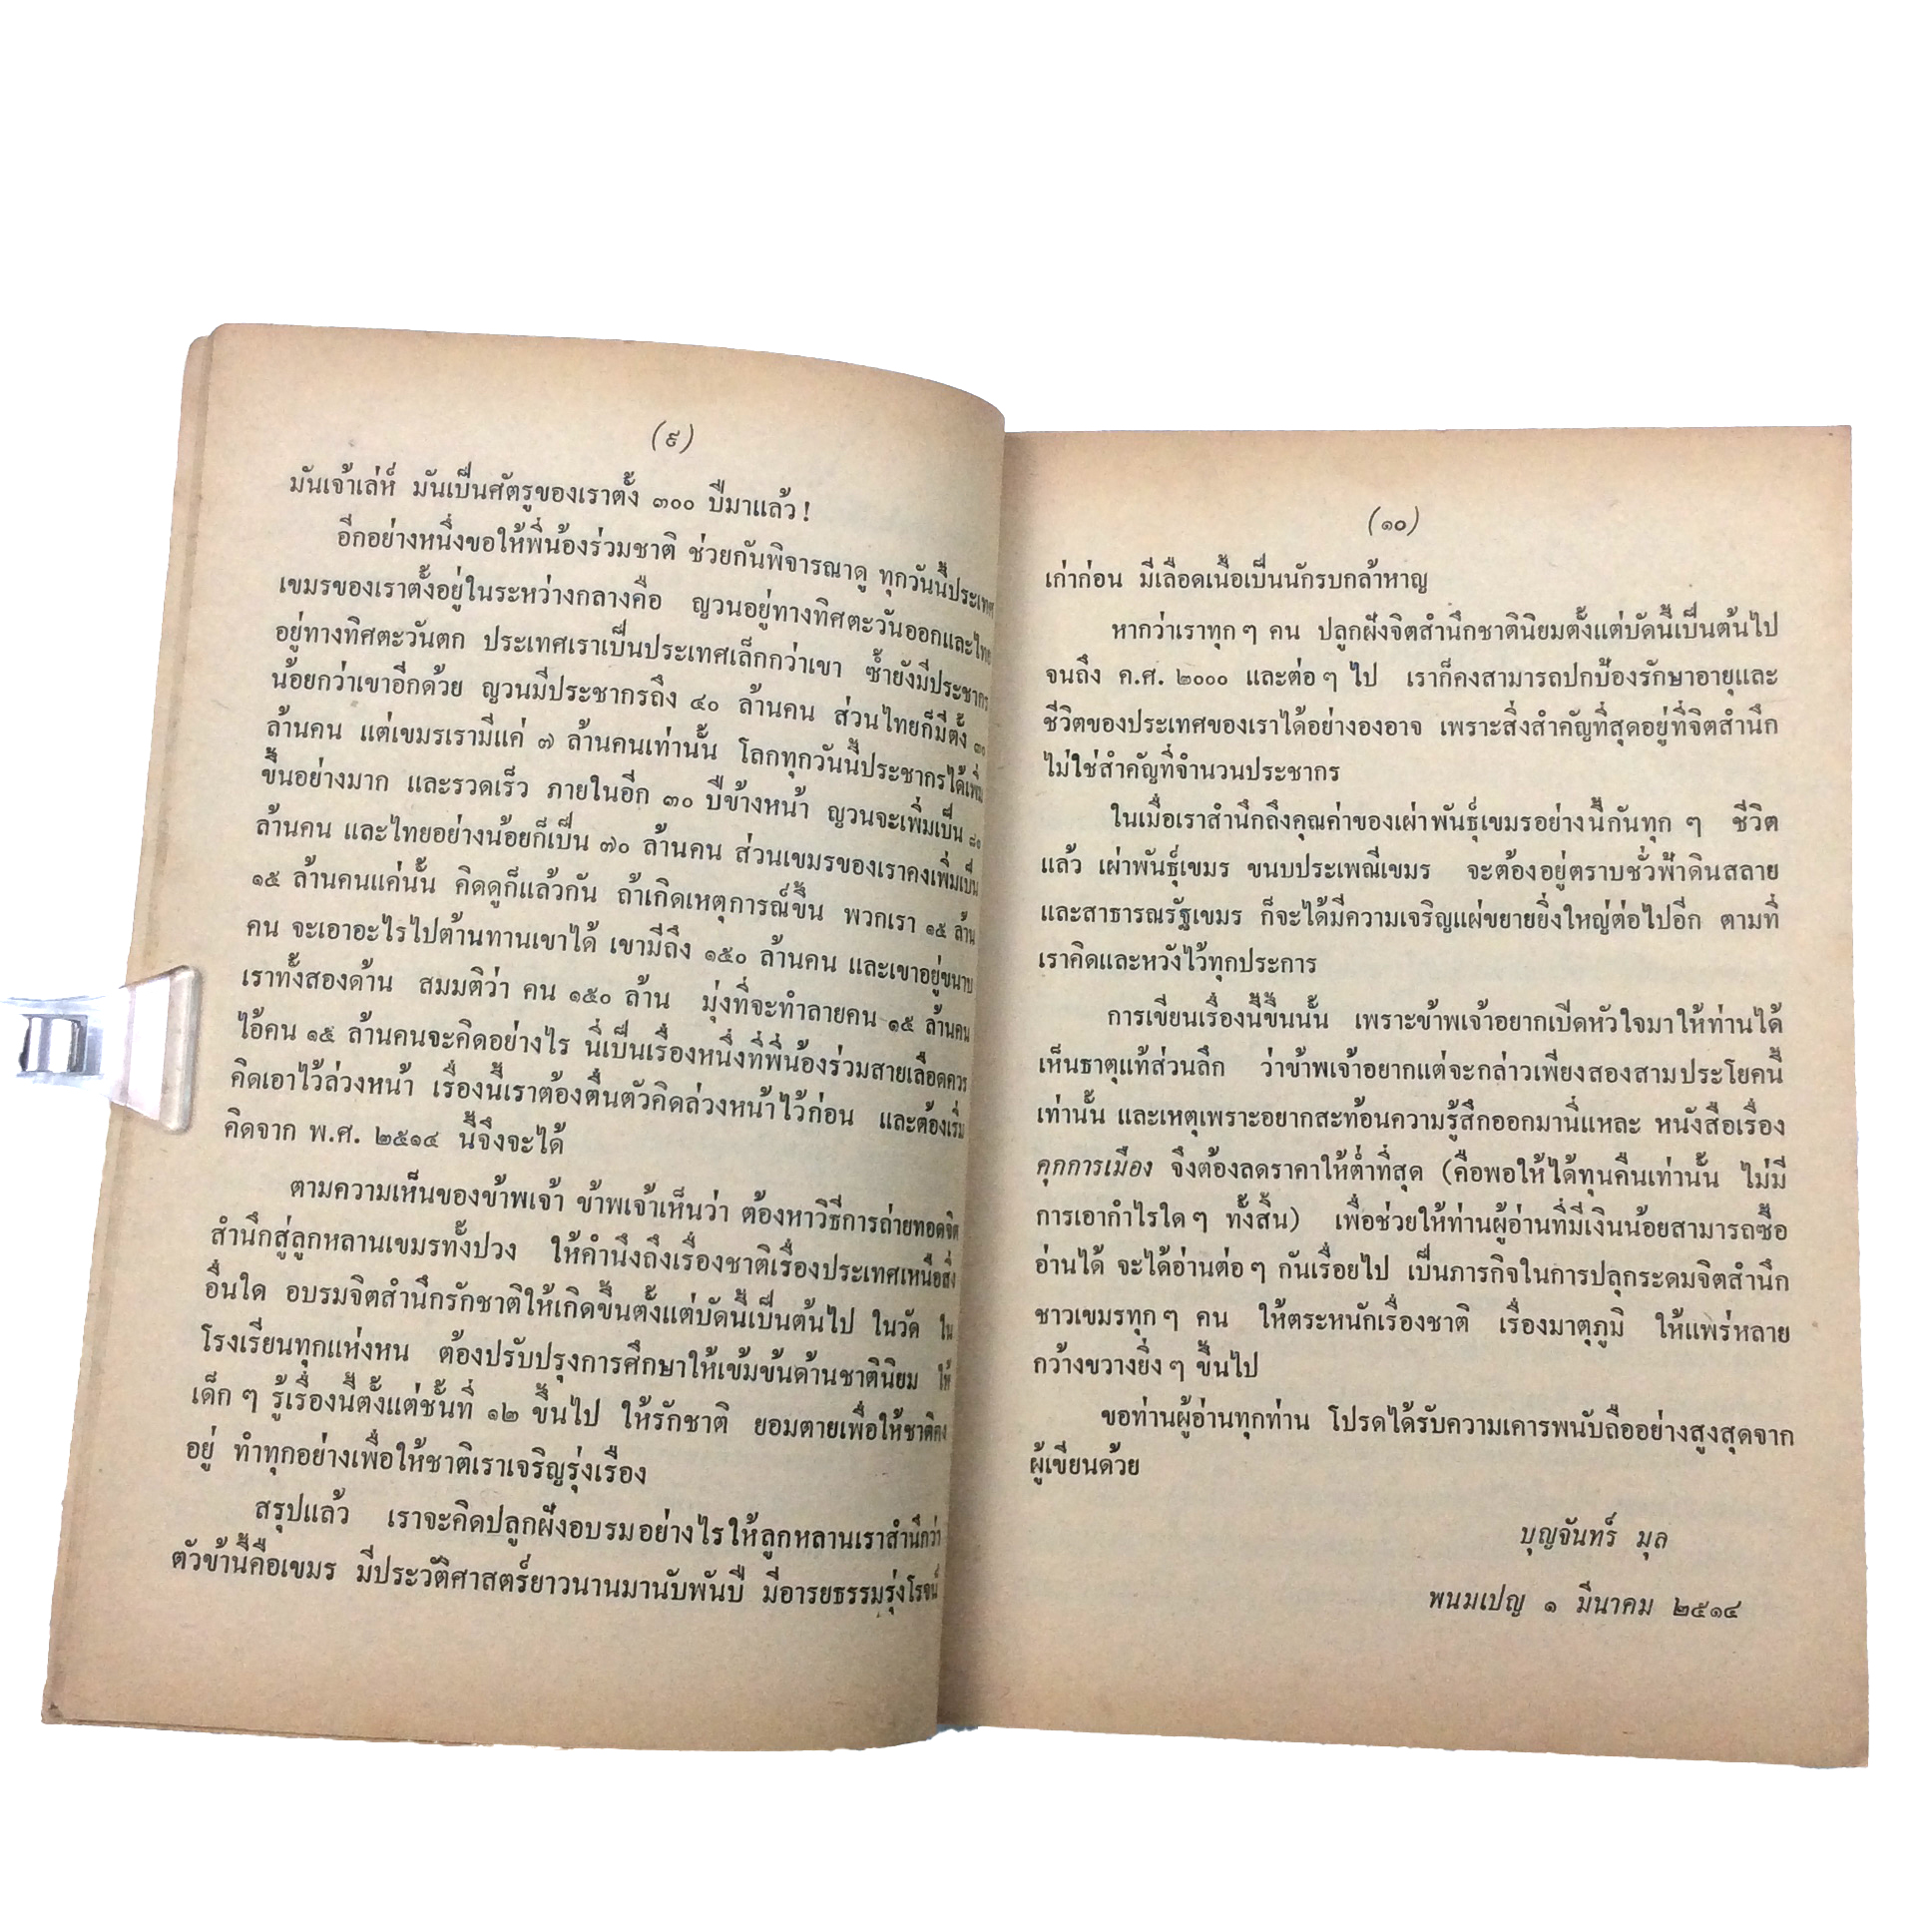 (๙)
มันเจ้าเล่ห์ มันเป็นศัตรูของเราตั้ง ๓๐๐ ปีมาแล้ว !
อีกอย่างหนึ่งขอให้พี่น้องร่วมชาติ ช่วยกันพิจารณาดู ทุกวันนี้ประเทศ
เขมรของเราตั้งอยู่ในระหว่างกลางคือ ญวนอยู่ทางทิศตะวันออกและไทย
อยู่ทางทิศตะวันตก ประเทศเราเป็นประเทศเล็กกว่าเขา ซ้ำยังมีประชากร
น้อยกว่าเขาอีกด้วย ญวนมีประชากรถึง ๔๐ ล้านคน ส่วนไทยก็มีตั้ง ๓๐
ล้านคน แต่เขมรเรามีแค่ ๗ ล้านคนเท่านั้น โลกทุกวันนี้ประชากรได้เพิ่ม
ขึ้นอย่างมาก และรวดเร็ว ภายในอีก ๓๐ ปีข้างหน้า ญวนจะเพิ่มเป็น ๘๐
ล้านคน และไทยอย่างน้อยก็เป็น ๗๐ ล้านคน ส่วนเขมรของเราคงเพิ่มเป็น
๑๕ ล้านคนแค่นั้น คิดดูก็แล้วกัน ถ้าเกิดเหตุการณ์ขึ้น พวกเรา ๑๕ ล้าน
คน จะเอาอะไรไปต้านทานเขาได้ เขามีถึง ๑๕๐ ล้านคน และเขาอยู่ขนาบ
เราทั้งสองด้าน สมมติว่า คน ๑๕๐ ล้าน มุ่งที่จะทำลายคน ๑๕ ล้านคน
ไอ้คน ๑๕ ล้านคนจะคิดอย่างไร นี่เป็นเรื่องหนึ่งที่พี่น้องร่วมสายเลือดควร
คิดเอาไว้ล่วงหน้า เรื่องนี้เราต้องตื่นตัวคิดล่วงหน้าไว้ก่อน และต้องเริ่ม
คิดจาก พ.ศ. ๒๕๑๔ นี้จึงจะได้
ตามความเห็นของข้าพเจ้า ข้าพเจ้าเห็นว่า ต้องหาวิธีการถ่ายทอดจิต
สำนึกสู่ลูกหลานเขมรทั้งปวง ให้คำนึงถึงเรื่องชาติเรื่องประเทศเหนือสิ่ง
อื่นใด อบรมจิตสำนึกรักชาติให้เกิดขึ้นตั้งแต่บัดนี้เป็นต้นไป ในวัด ใน
โรงเรียนทุกแห่งหน ต้องปรับปรุงการศึกษาให้เข้มข้นด้านชาตินิยม ให้
เด็ก ๆ รู้เรื่องนี้ตั้งแต่ชั้นที่ ๑๒ ขึ้นไป ให้รักชาติ ยอมตายเพื่อให้ชาติคง
อยู่ ทำทุกอย่างเพื่อให้ชาติเราเจริญรุ่งเรือง
สรุปแล้ว เราจะคิดปลูกฝังอบรมอย่างไรให้ลูกหลานเราสำนึกว่า
ตัวข้านี้คือเขมร มีประวัติศาสตร์ยาวนานมานับพันปี มีอารยธรรมรุ่งโรจน์
(๑๐)
เก่าก่อน มีเลือดเนื้อเป็นนักรบกล้าหาญ
หากว่าเราทุก ๆ คน ปลูกฝังจิตสำนึกชาตินิยมตั้งแต่บัดนี้เป็นต้นไป
จนถึง ค.ศ. ๒๐๐๐ และต่อ ๆ ไป เราก็คงสามารถปกป้องรักษาอายุและ
ชีวิตของประเทศของเราได้อย่างองอาจ เพราะสิ่งสำคัญที่สุดอยู่ที่จิตสำนึก
ไม่ใช่สำคัญที่จำนวนประชากร
ในเมื่อเราสำนึกถึงคุณค่าของเผ่าพันธุ์เขมรอย่างนี้กันทุก ๆ ชีวิต
แล้ว เผ่าพันธุ์เขมร ขนบประเพณีเขมร จะต้องอยู่ตราบชั่วฟ้าดินสลาย
และสาธารณรัฐเขมร ก็จะได้มีความเจริญแผ่ขยายยิ่งใหญ่ต่อไปอีก ตามที่
เราคิดและหวังไว้ทุกประการ
การเขียนเรื่องนี้ขึ้นนั้น เพราะข้าพเจ้าอยากเปิดหัวใจมาให้ท่านได้
เห็นธาตุแท้ส่วนลึก ว่าข้าพเจ้าอยากแต่จะกล่าวเพียงสองสามประโยคนี้
เท่านั้น และเหตุเพราะอยากสะท้อนความรู้สึกออกมานี่แหละ หนังสือเรื่อง
คุกการเมือง จึงต้องลดราคาให้ต่ำที่สุด (คือพอให้ได้ทุนคืนเท่านั้น ไม่มี
การเอากำไรใด ๆ ทั้งสิ้น) เพื่อช่วยให้ท่านผู้อ่านที่มีเงินน้อยสามารถซื้อ
อ่านได้ จะได้อ่านต่อ ๆ กันเรื่อยไป เป็นภารกิจในการปลุกระดมจิตสำนึก
ชาวเขมรทุก ๆ คน ให้ตระหนักเรื่องชาติ เรื่องมาตุภูมิ ให้แพร่หลาย
กว้างขวางยิ่ง ๆ ขึ้นไป
ขอท่านผู้อ่านทุกท่าน โปรดได้รับความเคารพนับถืออย่างสูงสุดจาก
ผู้เขียนด้วย
บุญจันทร์ มุล
พนมเปญ ๑ มีนาคม ๒๕๑๔